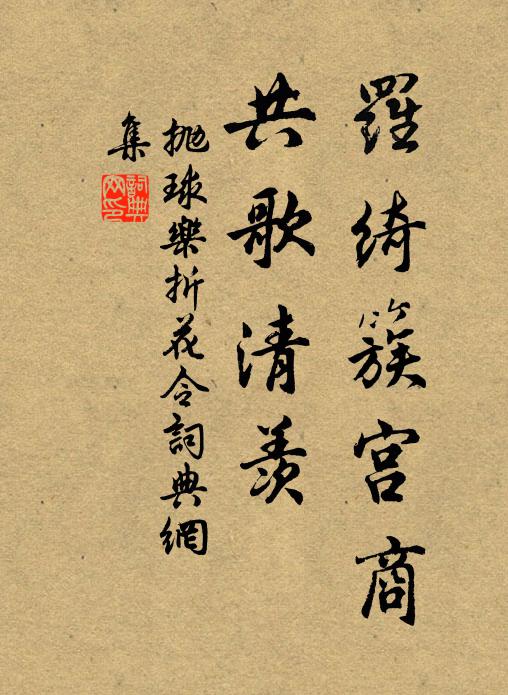 羅綺簇宮商
共歌清羨
拋球樂折花令詞典網
集
詞典網印